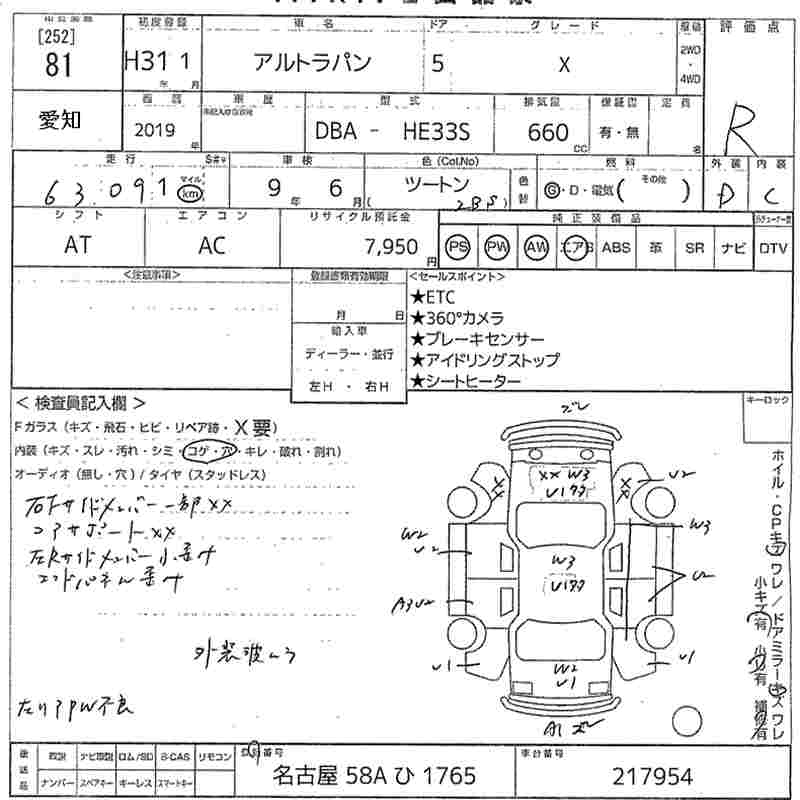 [252]
81
初度登録
H31 1
年 月
車名
アルトラパン
ドア
5
グレード
X
2WD
4WD
評価点
R
愛知
2019
年
車歴
型式
DBA - HE33S
排気量
660
CC
保証書
有・無
定員
名
走行
63,091
マイル
km
車検
9 年 6 月
色(Col.No)
ツートン
(2BS)
色替
燃料
G・D・電気( その他 )
外装
D
内装
C
シフト
AT
エアコン
AC
リサイクル預託金
7,950円
純正装備品
PS PW AW エアB ABS 革 SR ナビ DTV
<注意事項>
登録書類有効期限
月 日
輸入車
ディーラー・並行
左H ・ 右H
<セールスポイント>
★ETC
★360°カメラ
★ブレーキセンサー
★アイドリングストップ
★シートヒーター
キーロック
< 検査員記入欄 >
Fガラス (キズ・飛石・ヒビ・リペア跡・X要)
内装 (キズ・スレ・汚れ・シミ・コゲ・穴・キレ・破れ・割れ)
オーディオ (無し・穴) / タイヤ (スタッドレス)
右Fサイドメンバー一部XX
コアサポートXX
左Rサイドメンバー小歪み
エンドパネル歪み
外装波ムラ
左リアPW不良
ズレ
XX W3
U2
W2
U2
W3
W3
U2
A3 U2
U1
W2
U1
U1
A1 ズレ
ホイル・CPキズ ワレ / ドアミラーキズ ワレ
小キズ有 小凹有 補修有
後送品
取説 ナビ取説 ロム/SD B-CAS リモコン
ナンバー スペアキー キーレス スマートキー
登録番号
名古屋 58A ひ 1765
車台番号
217954